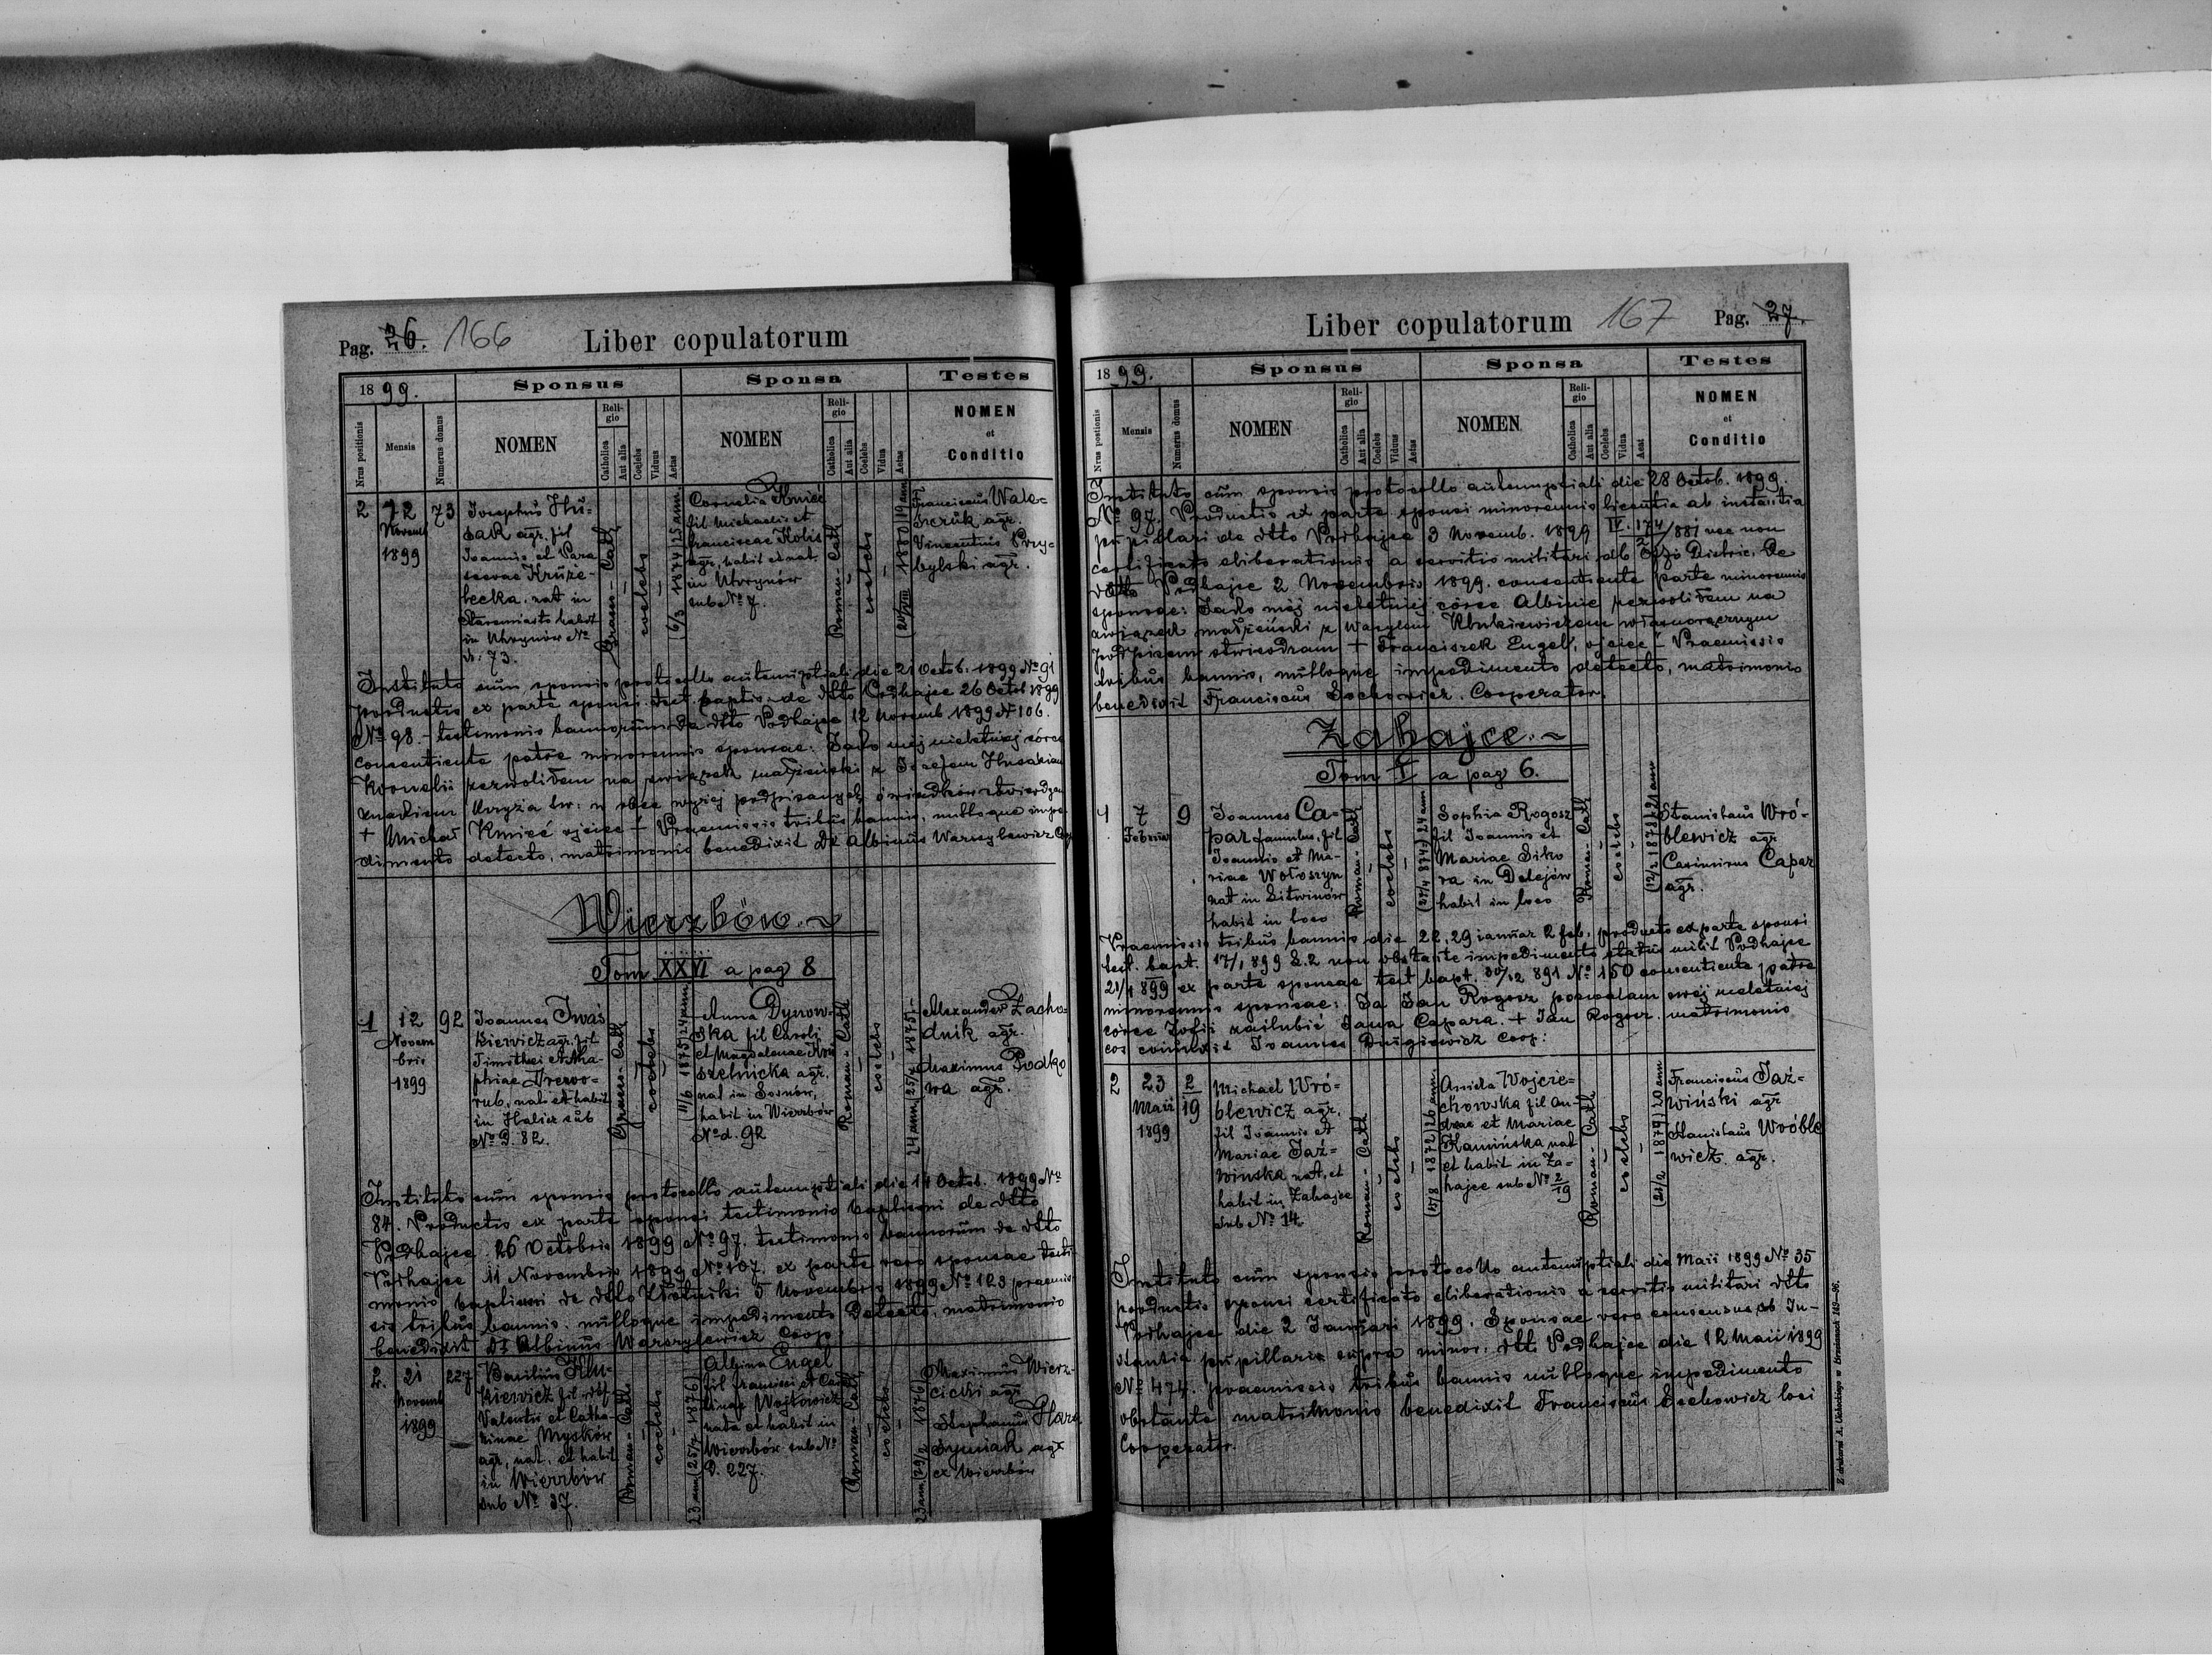 Pag. 26. 166 Liber copulatorum
1899. Sponsus Sponsa Testes
Nrus positionis Mensis Numerus domus NOMEN Religio Catholica Aut alia Coelebs Viduus Aetas NOMEN Religio Catholica Aut alia Coelebs Vidua Aetas NOMEN et Conditio
2 12 Novemb 1899 73
Josephus Hu-
sak agr. fil
Joannis et Para
scevae Kruże-
lecka. nat in
Staremiasto habit
in Uhrynów No
d. 73.
Graeco-Cath
coelebs
(6/3 1874) 25 ann.
Cornelia Kmieć
fil Michaelis et
Franciscae Kolis
agr. habit et nat
in Uhrynów
sub No 7.
Roman-Cath
coelebs
1880) 19 ann
Franciscus Wala-
szczuk agr.
Vincentius Przy-
bylski agr.
Instituto cum sponsis protocollo antenuptiali die 21 Octob. 1899 No 91
productis ex parte sponsi test. baptis. de dtto Podhajce 26 Octob 1899
No 98. - testimonio bannorum de dtto Podhajce 12 Novemb 1899 No 106.
consentiente patre minorennis sponsae: Jako mej nieletniej córce
Kornelii zezwoliłem na związek małżeński z Józefem Husakiem
znakiem krzyża św: w obec wyżej podpisanych świadków stwierdzam
+ Michał Kmieć ojciec + Praemissis tribus bannis, nulloque impe
dimento detecto, matrimonio benedixit Dr Albinus Warszylewicz
Wierzbów.~
Tom XXVI a pag 8
1 12 Novem bris 1899 92
Joannes Iwaś
kiewicz agr. fil
Timothei et Aga-
phiae Drewo-
rub, nat et habit
in Halicz sub
No D. 82.
Graeco-Cath
coelebs
(11/6 1875) 24 ann
Anna Dynow-
ska fil Caroli
et Magdalenae
szelnicka agr.
nat in Sosnów,
habit in Wierzbów
No d. 92
Roman-Cath
coelebs
24 ann (25/4 1875.-
Alexander Zacho-
dnik agr.
Maximus Podko
wa agr.
Instituto cum sponsis protocollo antenuptiali die 14 Octob. 1899 No
84. Productis ex parte sponsi testimonio baptismi de dtto
Podhajce 26 Octobris 1899 No 97. testimonio bannorum de dtto
Podhajce 11 Novembris 1899 No 107. ex parte vero sponsae testi
monio baptismi de dtto Złotniki 5 Novembris 1899 No 123 praemis
sis tribus bannis. nulloque impedimento Detecto, matrimonio
benedixit Dr Albinus Warszylewicz Coop
2. 21 Novemb 1899 227
Basilius Khu-
kiewicz fil
Valentii et Catha
rinae Myskow
agr, nat. et habit
in Wierzbów
sub No 37.
Roman-Cath
coelebs
23 ann (25/7 1876)
Albina Engel
fil Francisci et Ca
Wojtowicz
nata et habit in
Wierzbów sub No
D. 227.
Roman-Cath
coelebs
23 ann (29/2 1876)
Maximus Wierz-
cicki agr
Stephanus Hara
symiak agr
ex Wierzbów
Liber copulatorum 167 Pag. 27.
1899. Sponsus Sponsa Testes
Nrus positionis Mensis Numerus domus NOMEN Religio Catholica Aut alia Coelebs Viduus Aetas NOMEN Religio Catholica Aut alia Coelebs Vidua Aeat NOMEN et Conditio
Instituto cum sponsis protocollo antenuptiali die 28 Octob. 1899.
No 97. Productis ex parte sponsi minorennis licentia ab instantia
pupillari de dtto Podhajce 3 Novemb. 1899 IV. 174/881 nec non
certificato eliberationis a servitio militari ab Offo Distric. De
dtto Podhajce 2 Novembris 1899. consentiente parte minorennis
sponsae: Jako mej nieletniej córce Albinie zezwoliłem na
związek małżeński z Wasylem Khukiewiczem własnoręcznym
podpisem stwierdzam + Franciszek Engel, ojciec + Praemissis
tribus bannis, nulloque impedimento detecto, matrimonio
benedixit Franciscus Sochowicz. Cooperator.
Zahajce.~
Tom I a pag 6.
1 7 Februar 9
Joannes Ca-
par famulus, fil
Joannis et Ma-
riae Wołoszyn
nat in Litwinów
habit in loco
Roman-Cath
coelebs
(27/4 874) 24 ann
Sophia Rogosz
fil Joannis et
Mariae Siko
ra in Delejów
habit in loco
Roman-Cath
coelebs
(12/2 1878) 21 ann
Stanislaus Wró-
blewicz agr
Casimirus Capar
agr.
Praemissis tribus bannis die 22, 29 januar 2 feb. producto ex parte sponsi
test. bapt. 17/1 899 L. 2 non obstante impedimento status milit Podhajce
21/1 899 ex parte sponsae test bapt. 30/12 891 No 150 consentiente patre
minorennis sponsae: Ja Jan Rogosz pozwalam swej nieletniej
córce Zofji zaślubić Jana Capara. + Jan Rogosz. matrimonio
eos coniunxit Joannes Długiewicz Coop:
2 23 Maii 1899 2/19
Michael Wró-
blewicz agr.
fil Joannis et
Mariae Jaź-
winska nat. et
habit in Zahajce
sub No 14
Roman-Cath
coelebs
(15/8 1872) 26 ann
Aniela Wojcie-
chowska fil An-
dreae et Mariae
Kamińska nat
et habit in Za-
hajce sub No 2/19
Roman-Cath
coelebs
(21/2 1879) 20 ann
Franciscus Jaź-
wiński agr
Stanislaus Wróble
wicz agr.
Instituto cum sponsis protocollo antenuptiali die Maii 1899 No 35
productis sponsi certificato eliberationis a servitio militari dtto
Podhajce die 2 Januari 1899. Sponsae vero consensus ab In-
stantia pupillaris supra minor. dtt. Podhajce die 12 Maii 1899
No 474. praemissis tribus bannis nulloque impedimento
obstante matrimonio benedixit Franciscus Sochowicz loci
Cooperator.